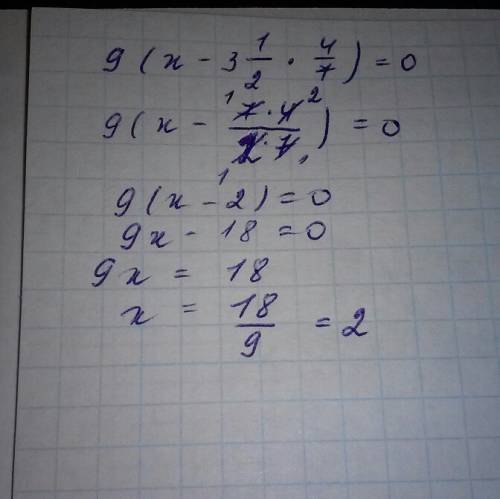 9 ( x - 3 1/2 · 4/7 ) = 0
9 ( x - (7 · 4)/(2 · 7) ) = 0
9 ( x - 2 ) = 0
9x - 18 = 0
9x = 18
x = 18/9 = 2